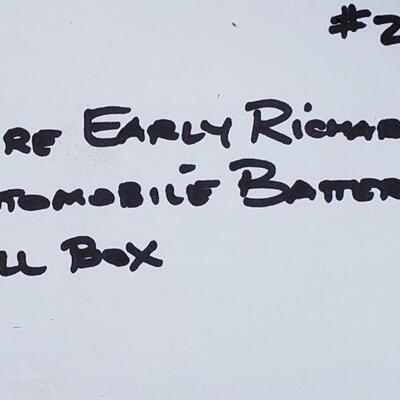 #2
RE EARLY RICHAR
TOMOBILE BATTER
LL BOX